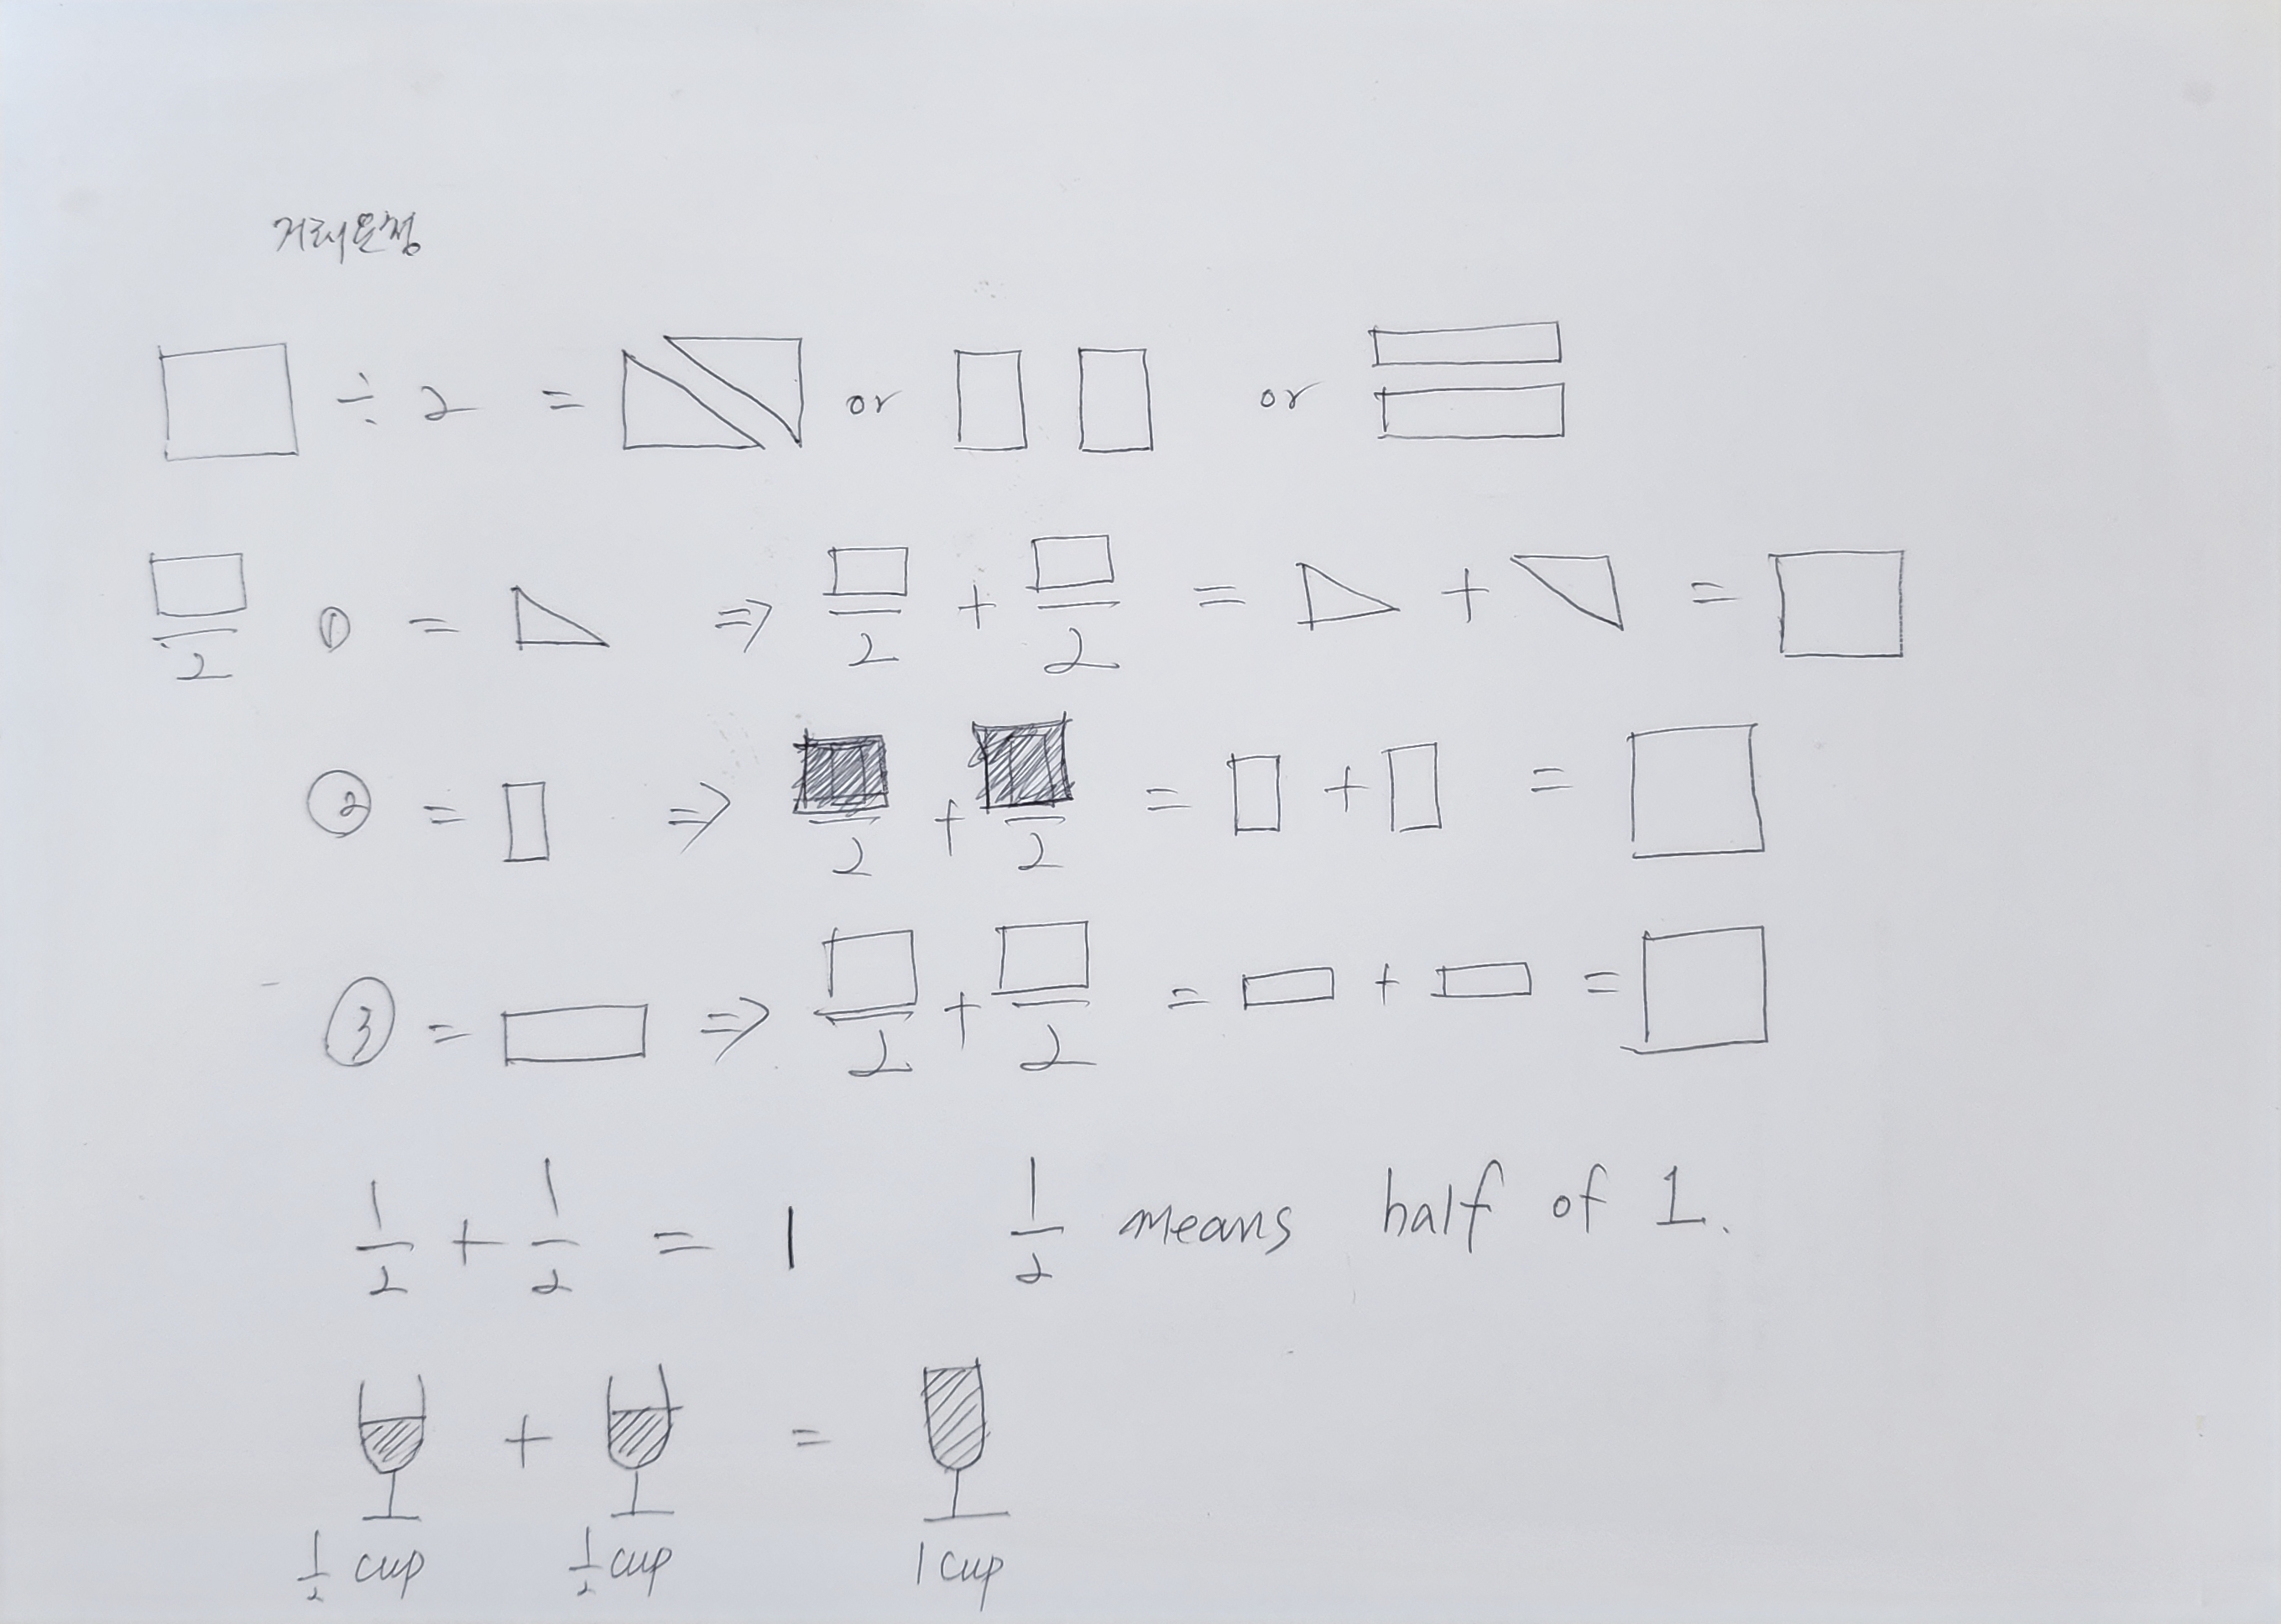 거래은정
□ ÷ 2 = or or
□/2 ① = ⇒ □/2 + □/2 = + = □
② = ⇒ /2 + /2 = + = □
③ = ⇒ □/2 + □/2 = + = □
1/2 + 1/2 = 1 1/2 means half of 1.
+ =
1/2 cup 1/2 cup 1 cup